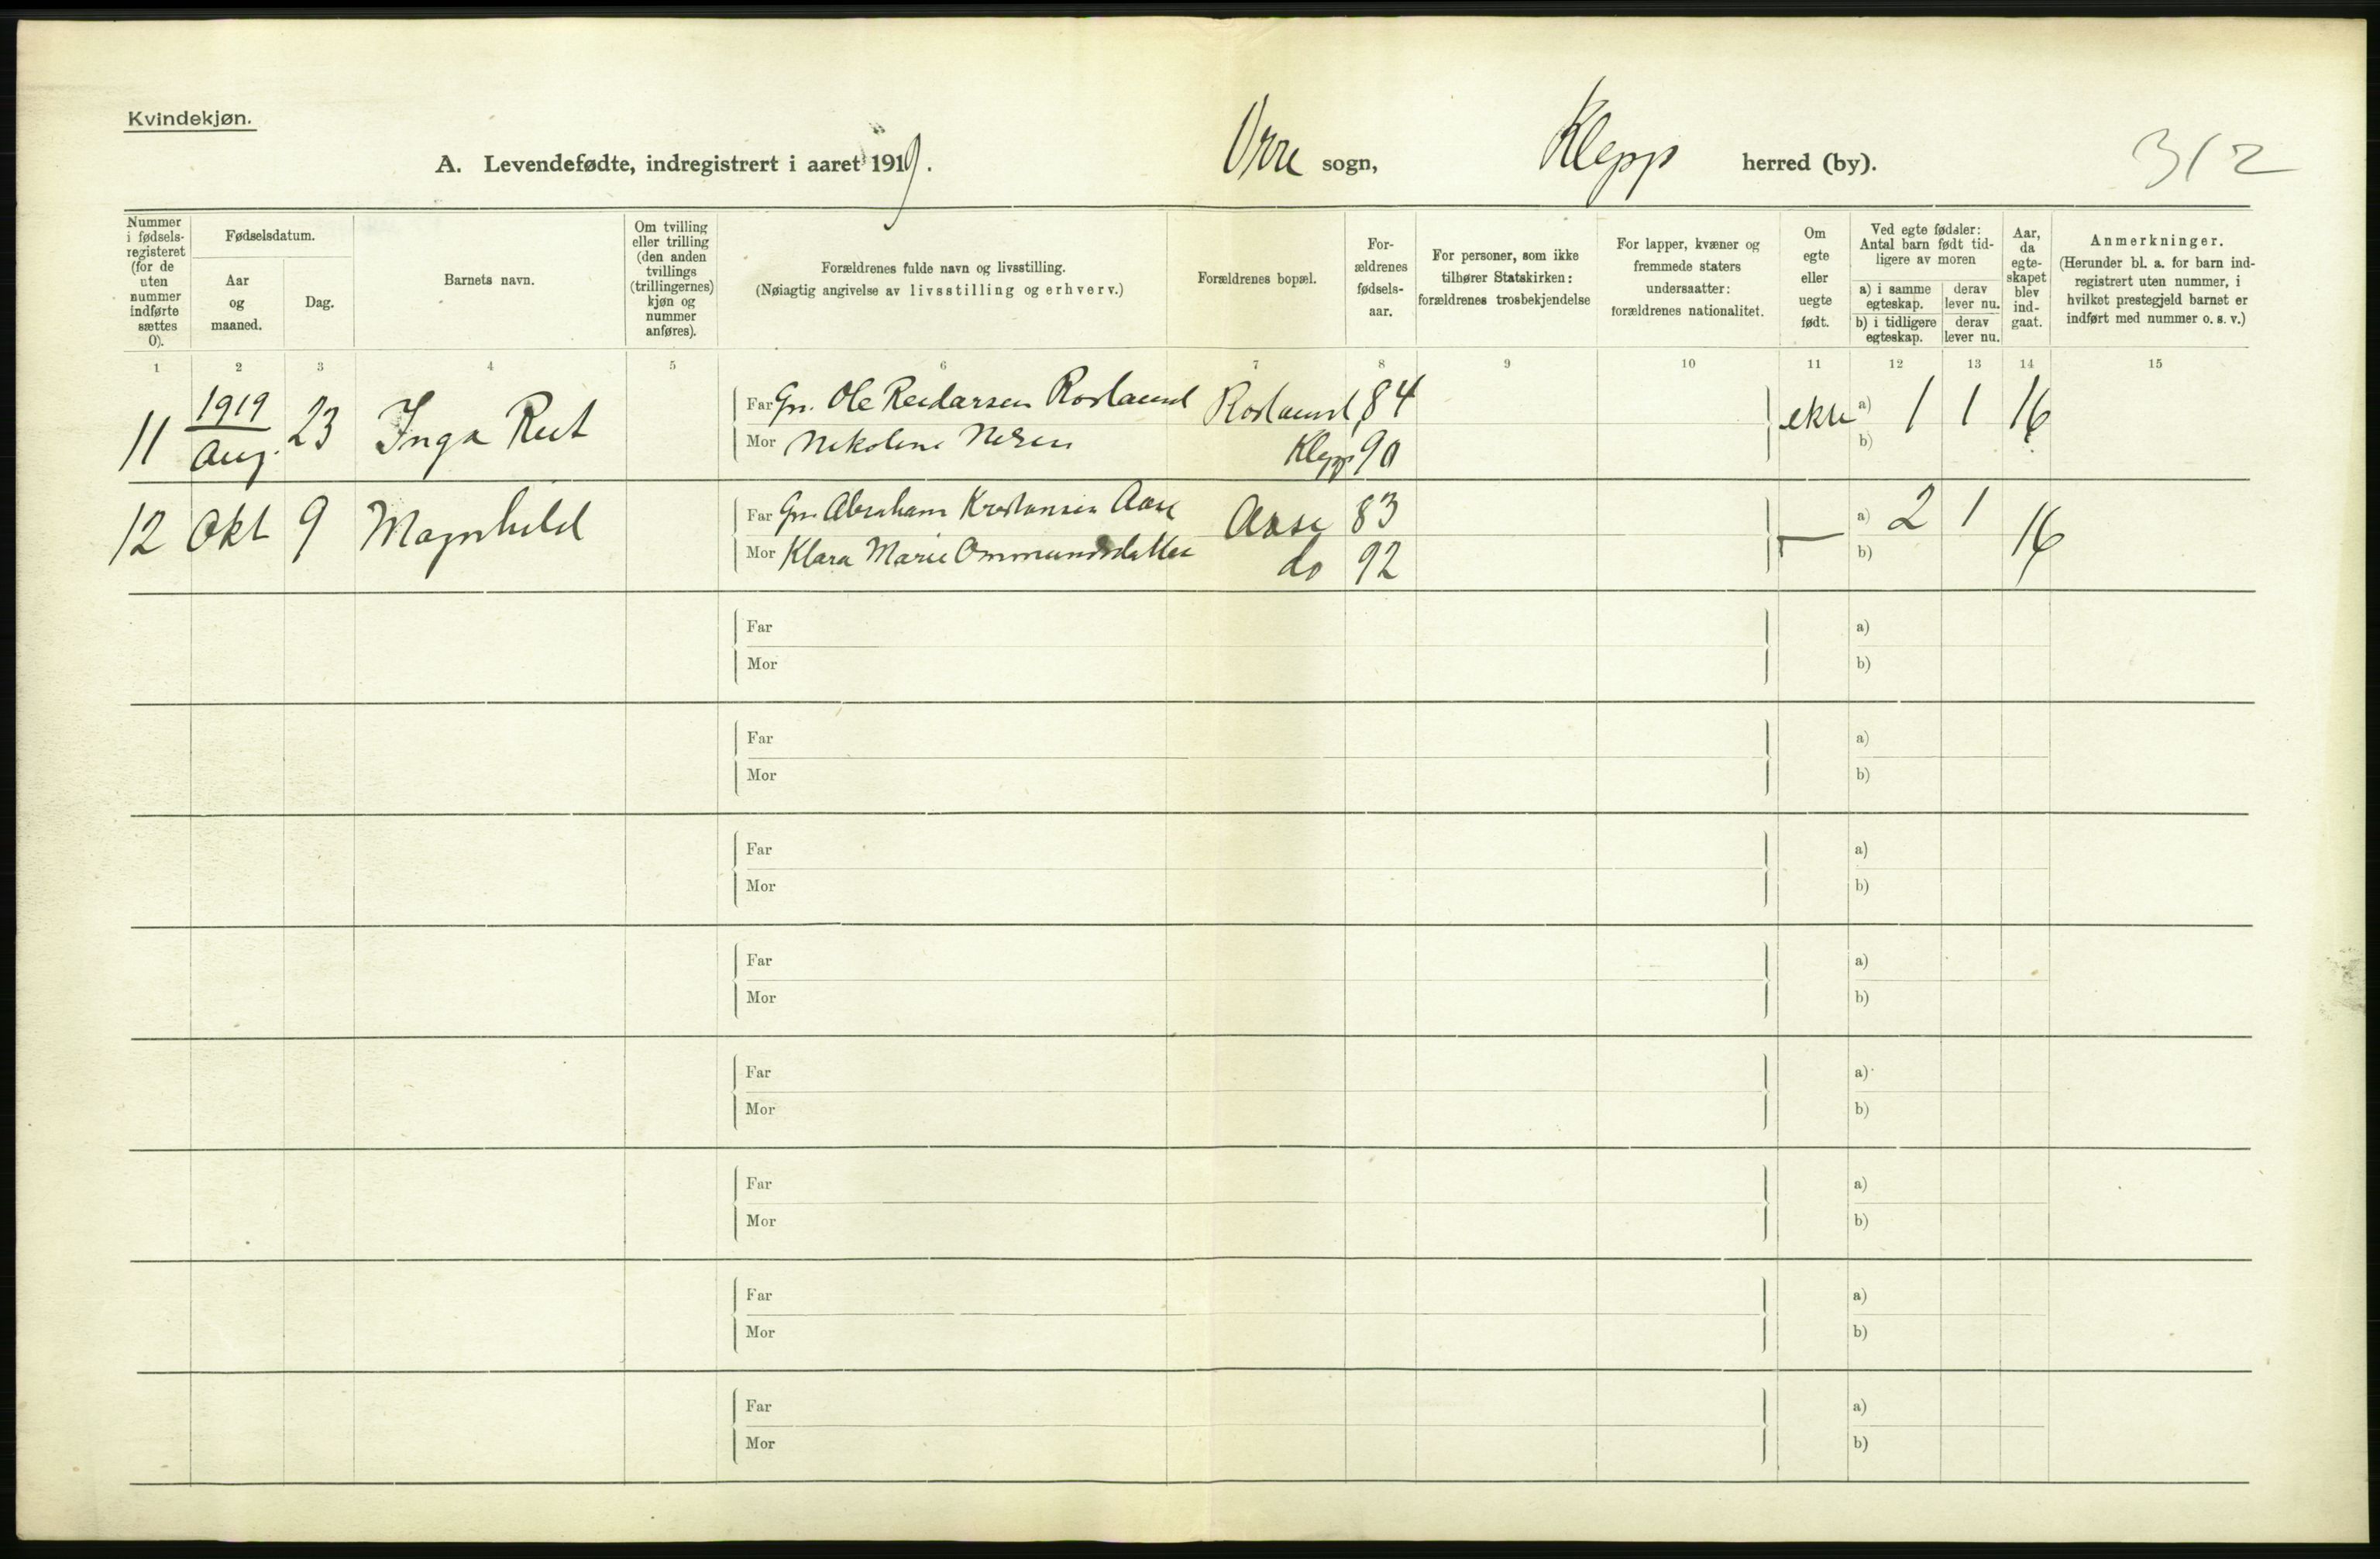 Kvindekjøn.
A. Levendefødte, indregistrert i aaret 1919.
Orre sogn,
Klepp herred (by).
312
Nummer i fødsels- registeret (for de uten nummer indførte sættes 0).
Fødselsdatum.
Aar og maaned.
Dag.
Barnets navn.
Om tvilling eller trilling (den anden tvillings (trillingernes) kjøn og nummer anføres).
Forældrenes fulde navn og livsstilling.
(Nøiagtig angivelse av livsstilling og erhverv.)
Forældrenes bopæl.
For- ældrenes fødsels- aar.
For personer, som ikke tilhører Statskirken: forældrenes trosbekjendelse
For lapper, kvæner og fremmede staters undersaatter: forældrenes nationalitet.
Om egte eller uegte født.
Ved egte fødsler: Antal barn født tid- ligere av moren
a) i samme egteskap.
derav lever nu.
b) i tidligere egteskap.
derav lever nu.
Aar, da egte- skapet blev ind- gaat.
Anmerkninger.
(Herunder bl. a. for barn ind- registrert uten nummer, i hvilket prestegjeld barnet er indført med nummer o. s. v.)
1 2 3 4 5 6 7 8 9 10 11 12 13 14 15
11 1919 Aug. 23 Inga Rut
Far Gm. Ole Reidarsen Roslaand Roslaand 84
Mor Nikoline Klepp 90
ekte a) 1 1 16
b)
12 Okt 9 Magnhild
Far Gm. Abraham Kristiansen Aase Aase 83
Mor Klara Marie Ommundsdatter do 92
— a) 2 1 16
b)
Far a)
Mor b)
Far a)
Mor b)
Far a)
Mor b)
Far a)
Mor b)
Far a)
Mor b)
Far a)
Mor b)
Far a)
Mor b)
Far a)
Mor b)